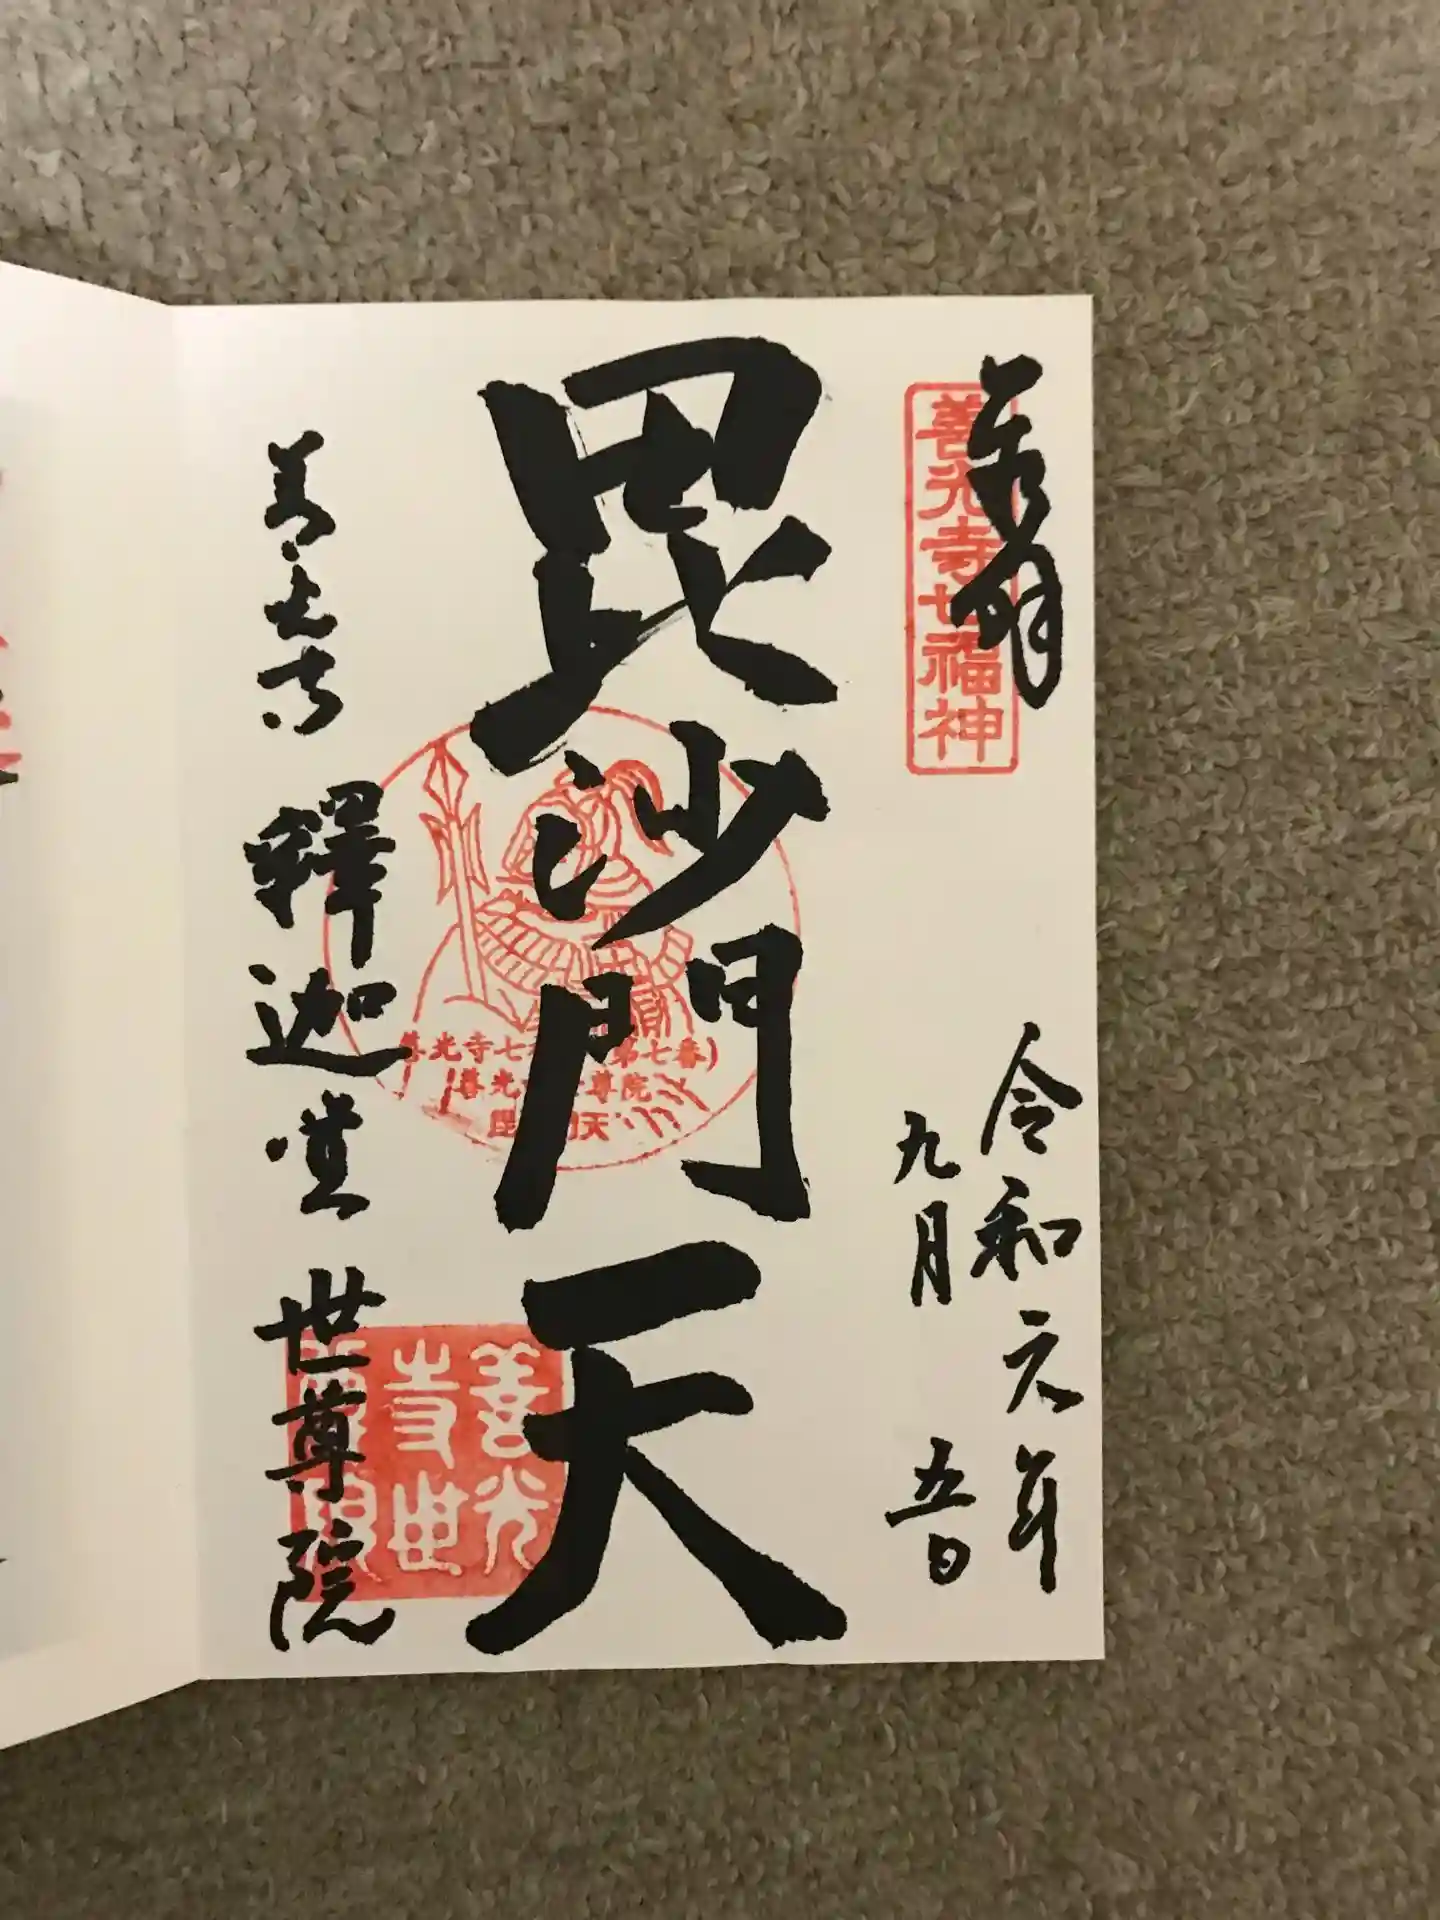 奉拝
善光寺七福神
令和元年
九月五日
毘沙門天
善光寺七 (第七番)
善光 世尊院
毘 門天
善光寺 釋迦堂 世尊院
善光
寺世
尊院